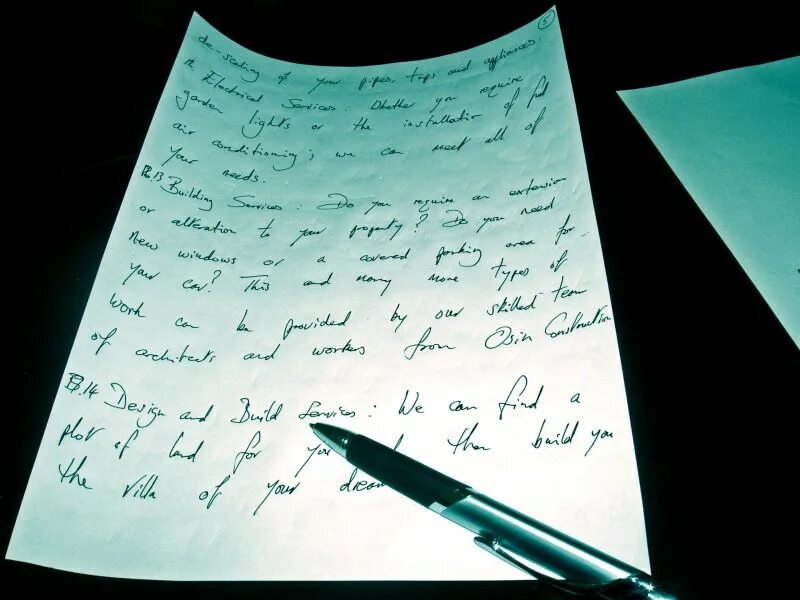 5
de-scaling of your pipes, taps and appliances.
12 Electrical Services: Whether you require
garden lights or the installation of full
air conditioning; we can meet all of
your needs.
13 Building Services: Do you require an extension
or alteration to your property? Do you need
new windows or a covered parking area for
your car? This and many more types of
work can be provided by our skilled team
of architects and workers from Osin Construction
14 Design and Build Services: We can find a
plot of land for you then build you
the villa of your dream